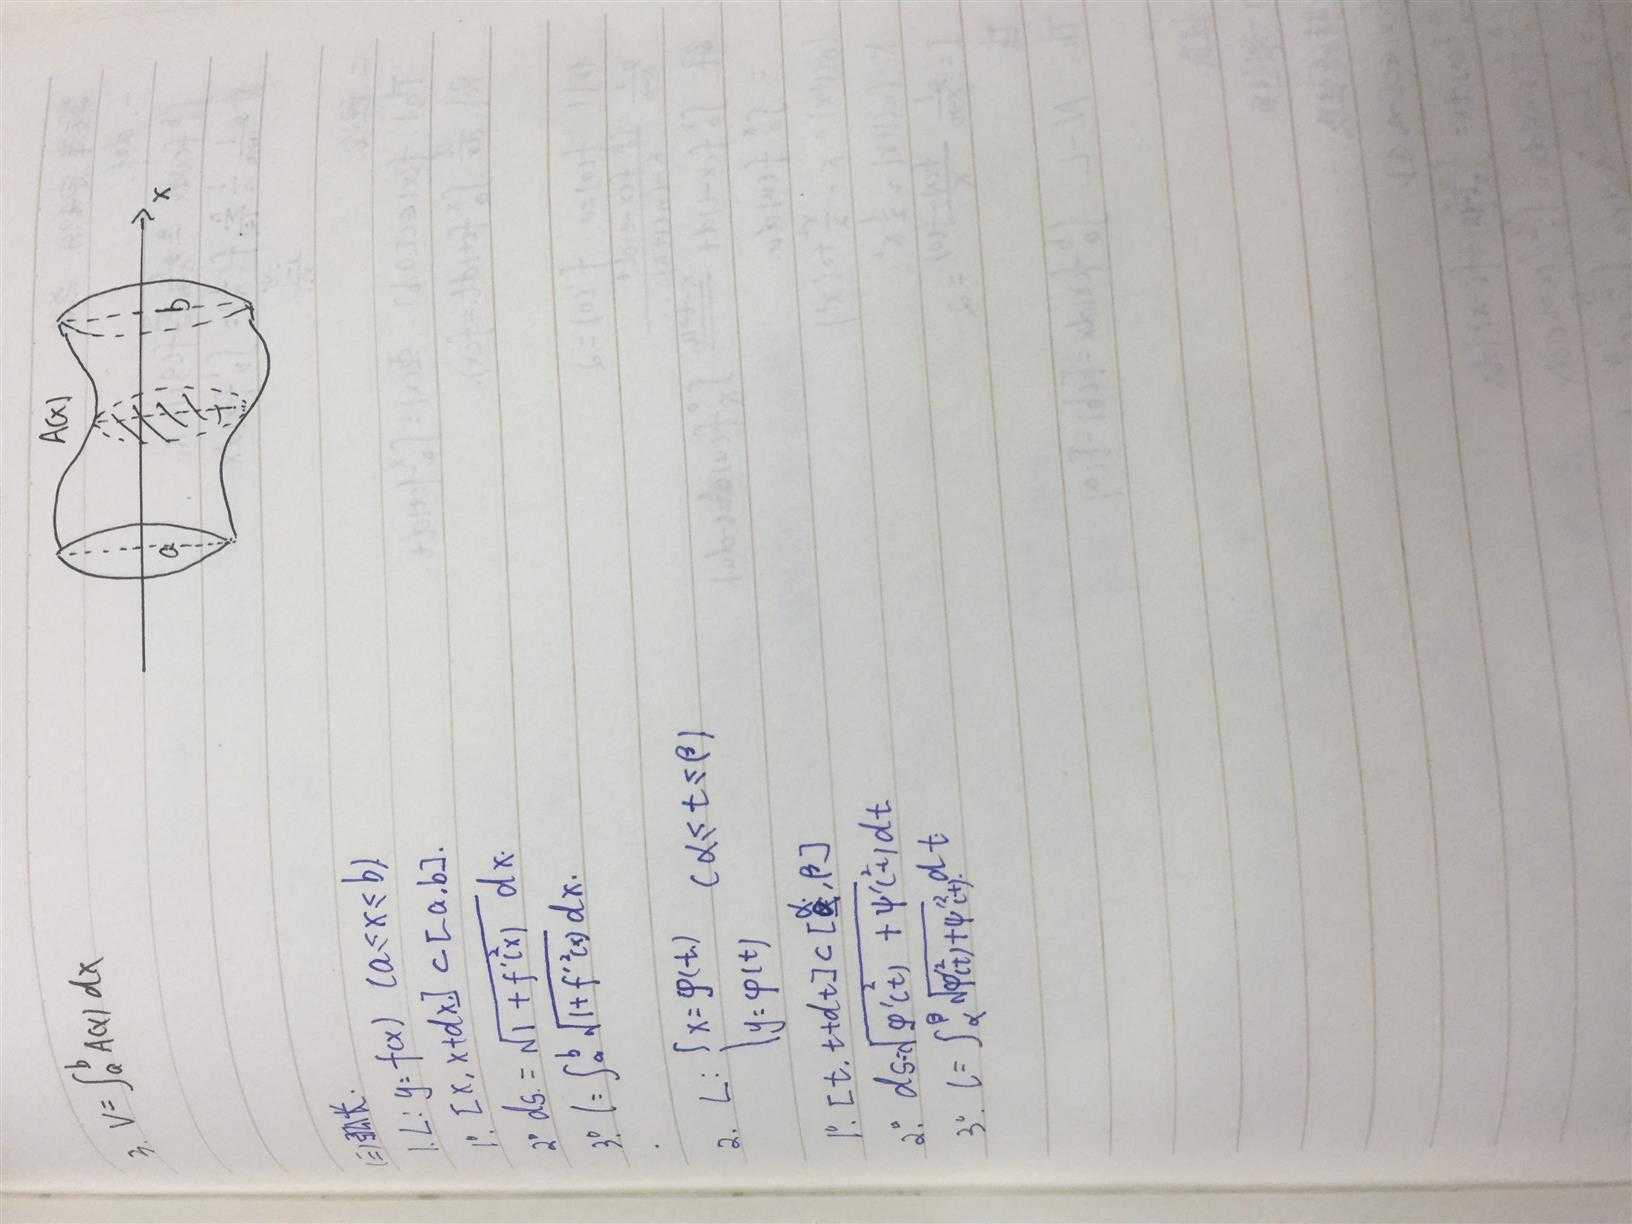 3. V=∫ₐᵇ A(x) dx
A(x)
a
b
x
(三)弧长.
1. L: y=f(x) (a≤x≤b)
1° [x, x+dx] ⊂ [a,b].
2° ds = √(1+f'²(x)) dx.
3° l = ∫ₐᵇ √(1+f'²(x)) dx.
2. L: { x=φ(t) (α≤t≤β)
y=φ(t)
1° [t, t+dt] ⊂ [α,β]
2° ds=√(φ'²(t)+ψ'²(t)) dt
3° l=∫_α^β √(φ'²(t)+ψ'²(t)) dt.